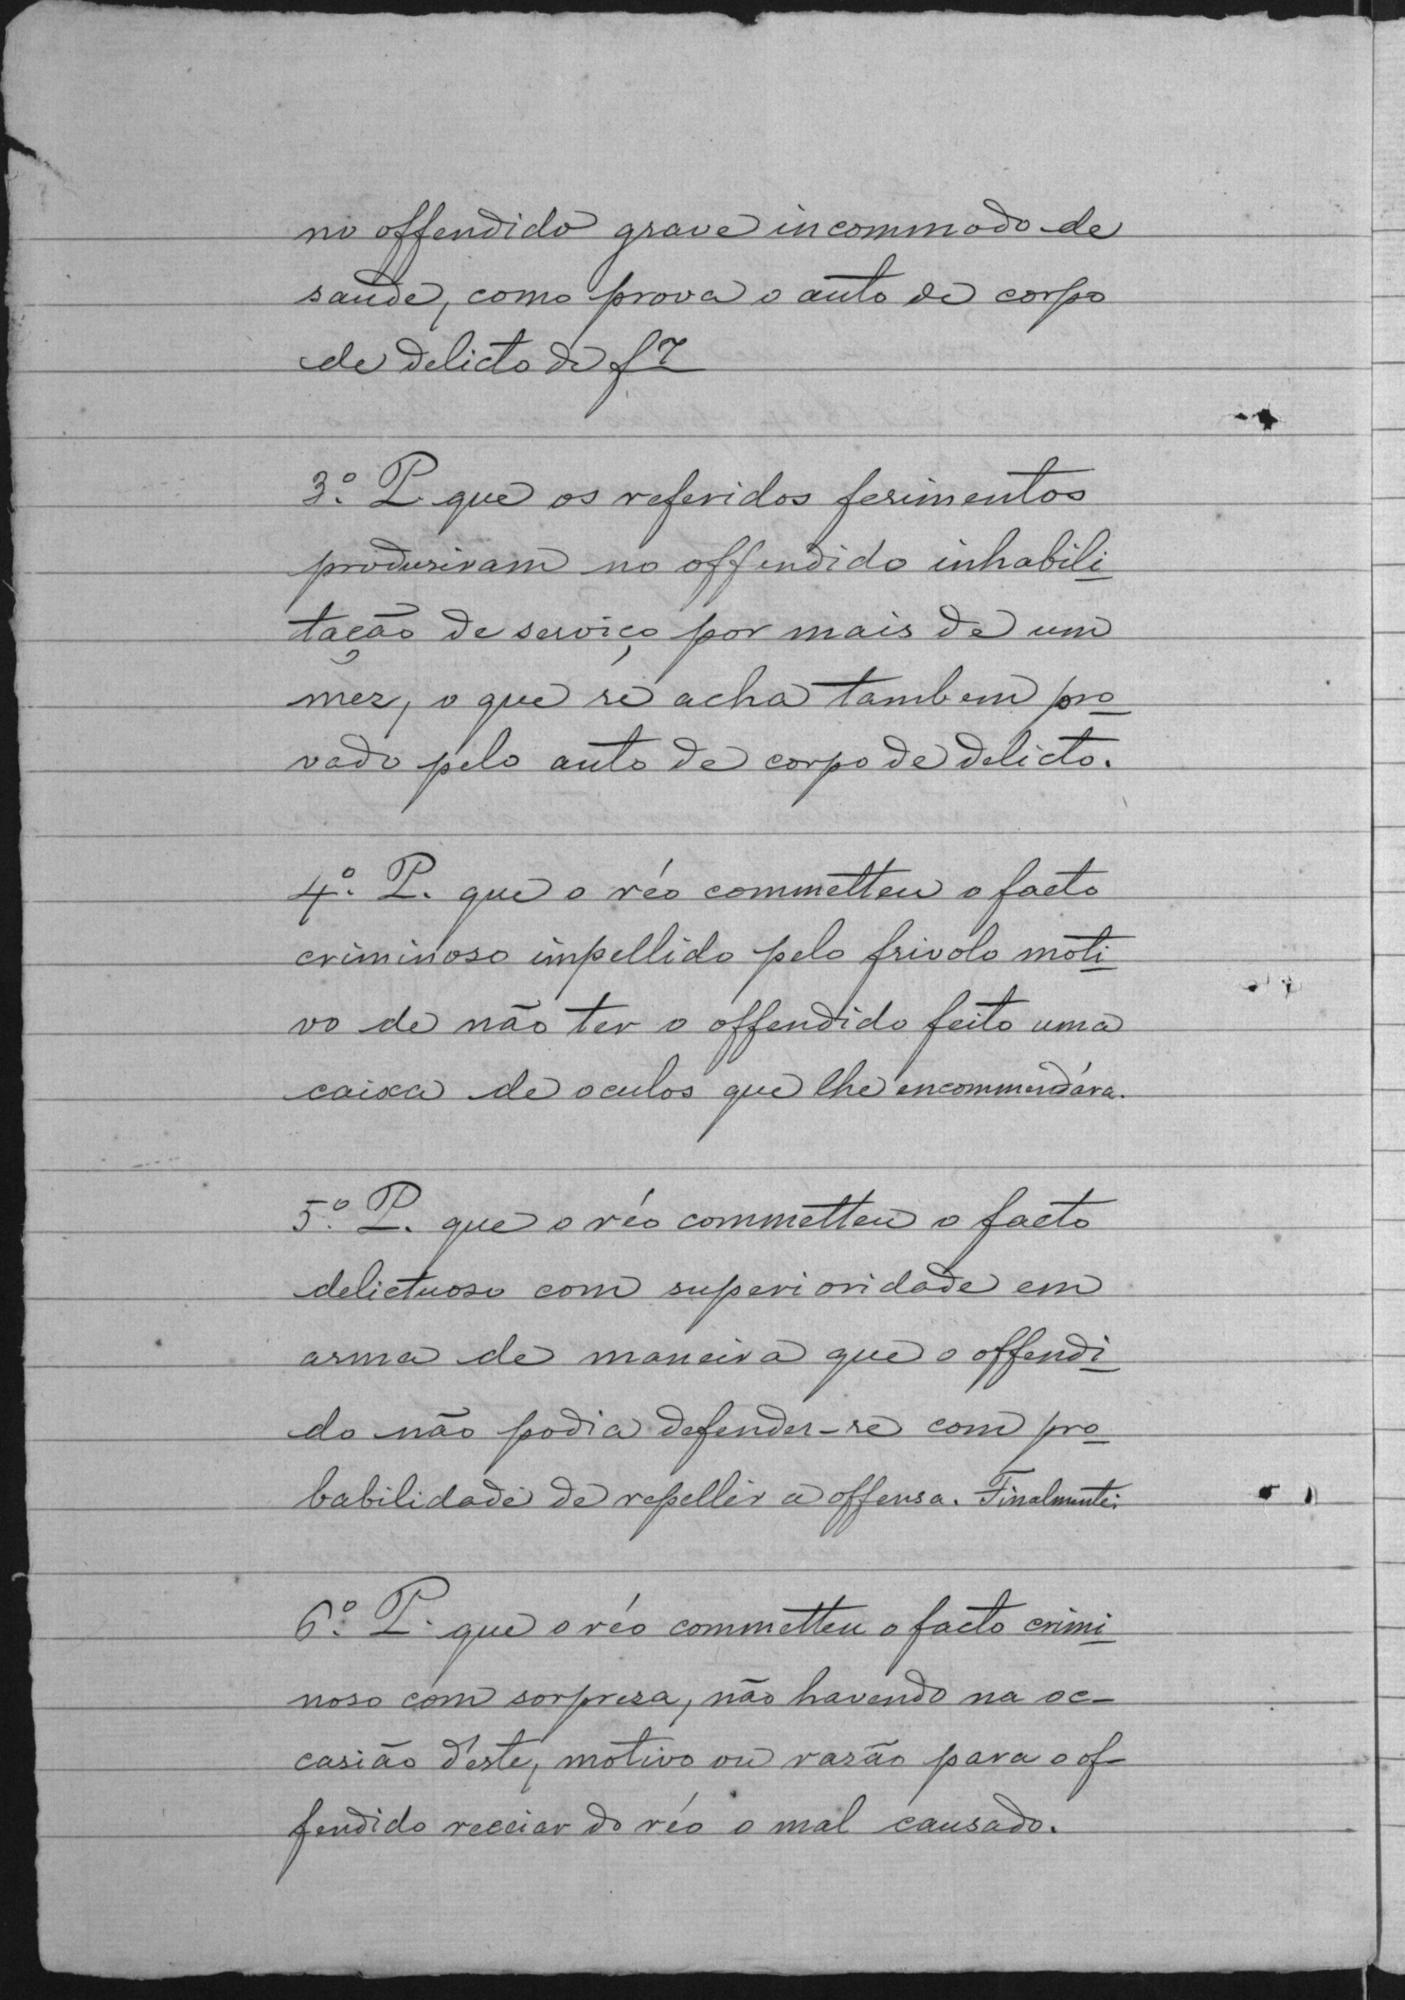 no offendido grave incommodo de
saude, como prova o auto de corpo
de delicto de f 7
3º. P. que os referidos ferimentos
produsiram no offendido inhabili
tação de serviço por mais de um
mez, o que se acha tambem pro
vado pelo auto de corpo de delicto.
4º. P. que o réo commetteu o facto
criminoso impellido pelo frivolo moti
vo de não ter o offendido feito uma
caixa de oculos que lhe encommendára.
5º. P. que o réo commetteu o facto
delictuoso com superioridade em
arma de maneira que o offendi
do não podia defender-se com pro
babilidade de repellir a offensa. Finalmente:
6º. P. que o réo commetteu o facto crimi
noso com sorpresa, não havendo na oc-
casião d'este, motivo ou rasão para o of-
fendido receiar do réo o mal causado.